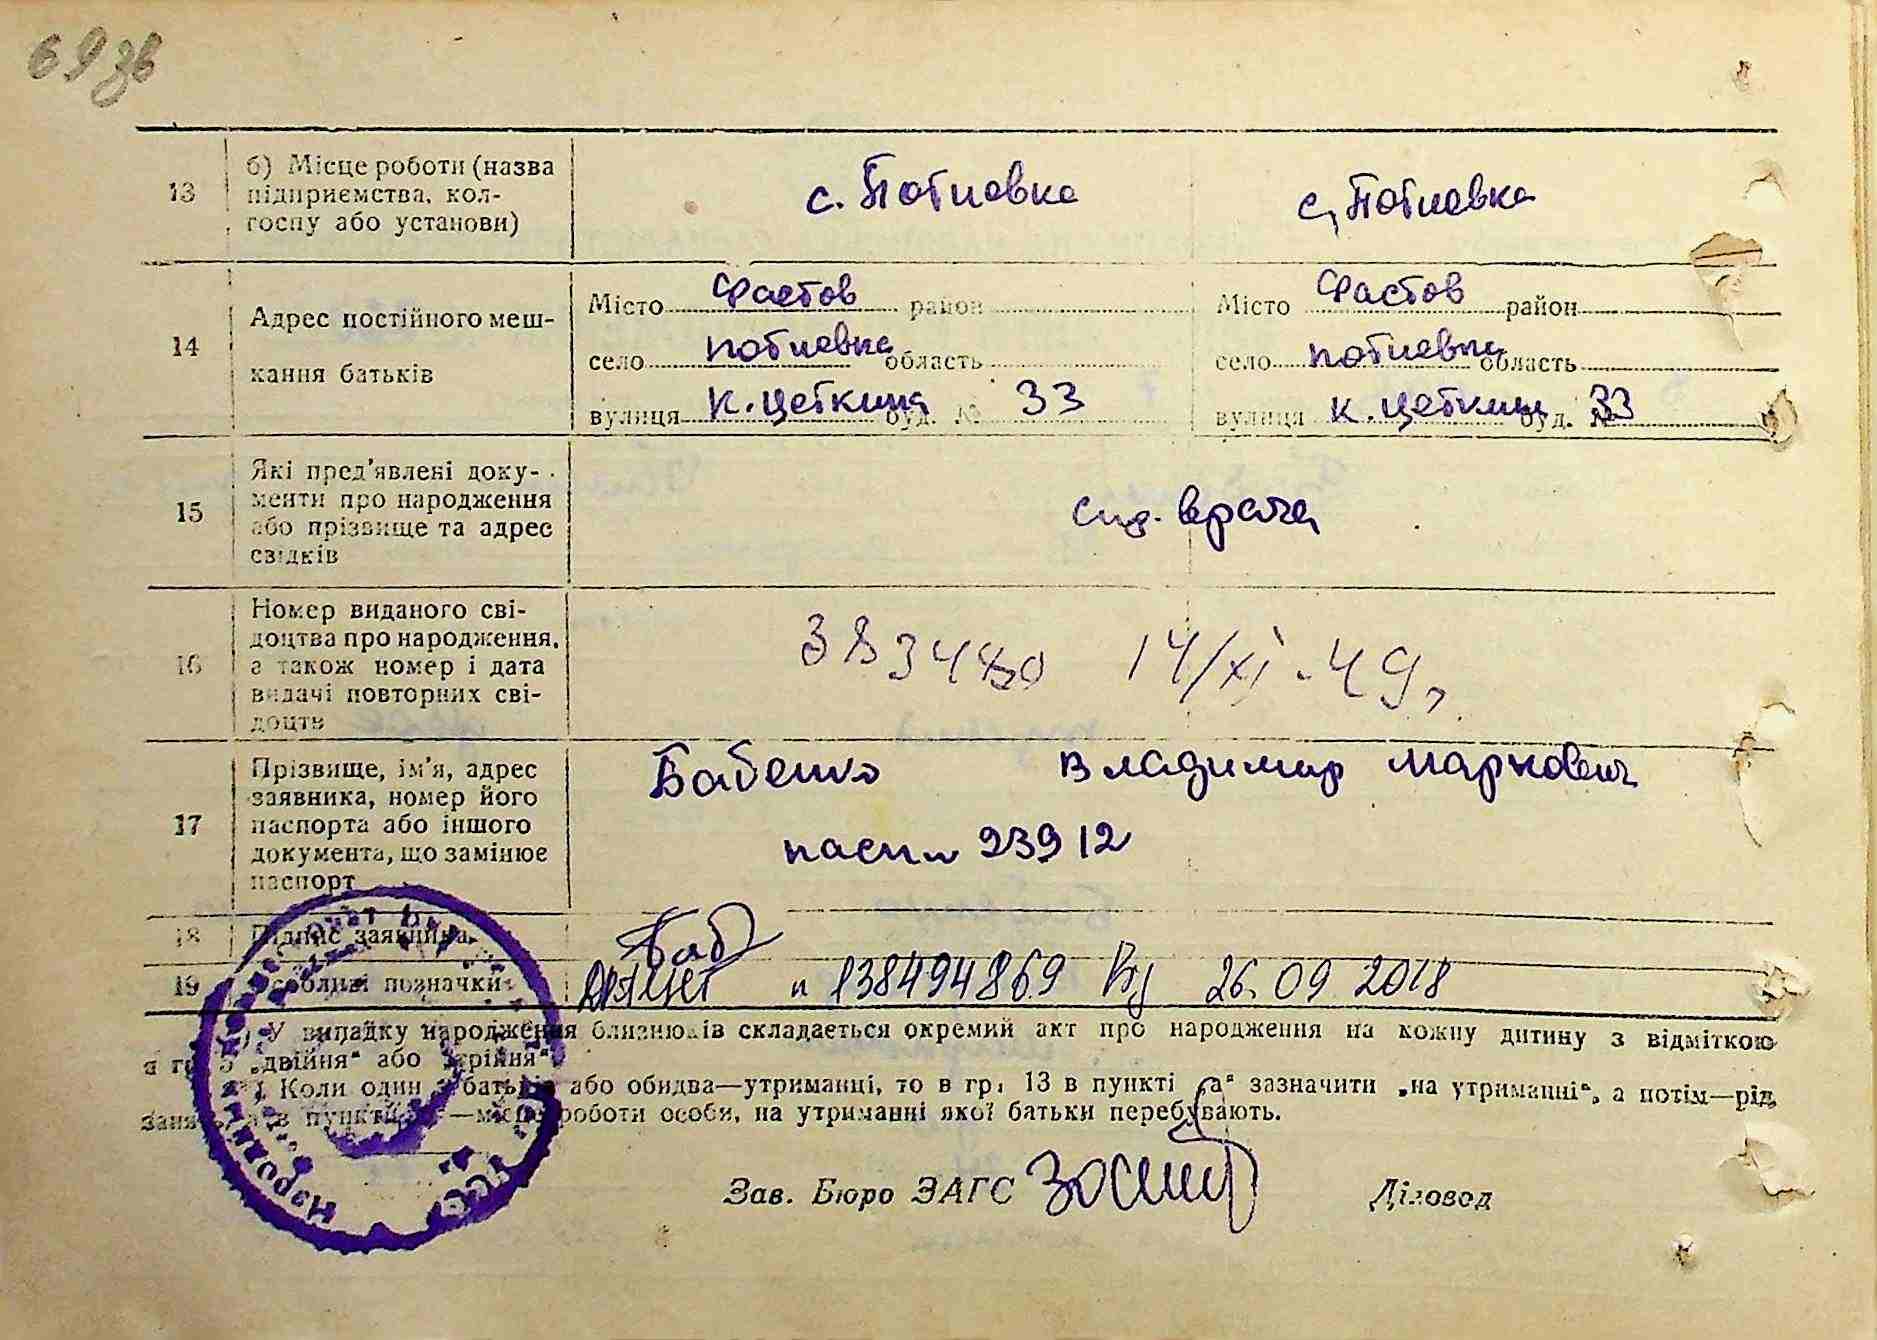 69зв
13 б) Місце роботи (назва підприємства, колгоспу або установи) с. Потиевка с. Потиевка
14 Адрес постійного мешкання батьків
Місто Фастов район Місто Фастов район
село потиевка область село потиевка область
вулиця К. Цеткина буд. № 33 вулиця К. Цеткин буд. № 33
15 Які пред'явлені документи про народження або прізвище та адрес свідків спр. врача
16 Номер виданого свідоцтва про народження, а також номер і дата видачі повторних свідоцтв 383480 14/XI-49г.
17 Прізвище, ім'я, адрес заявника, номер його паспорта або іншого документа, що замінює паспорт Бабенко Владимир Маркович
пасп 93912
18 Підпис заявника Баб
19 Особливі позначки н 138494869 від 26.09.2018
У випадку народження близнюків складається окремий акт про народження на кожну дитину з відміткою
в гр. 5 „двійня“ або „трійня“.
Коли один з батьків або обидва—утриманці, то в гр. 13 в пункті „а“ зазначити „на утриманні“, а потім—рід
занять, а в пункті —місце роботи особи, на утриманні якої батьки перебувають.
Зав. Бюро ЗАГС Діловод